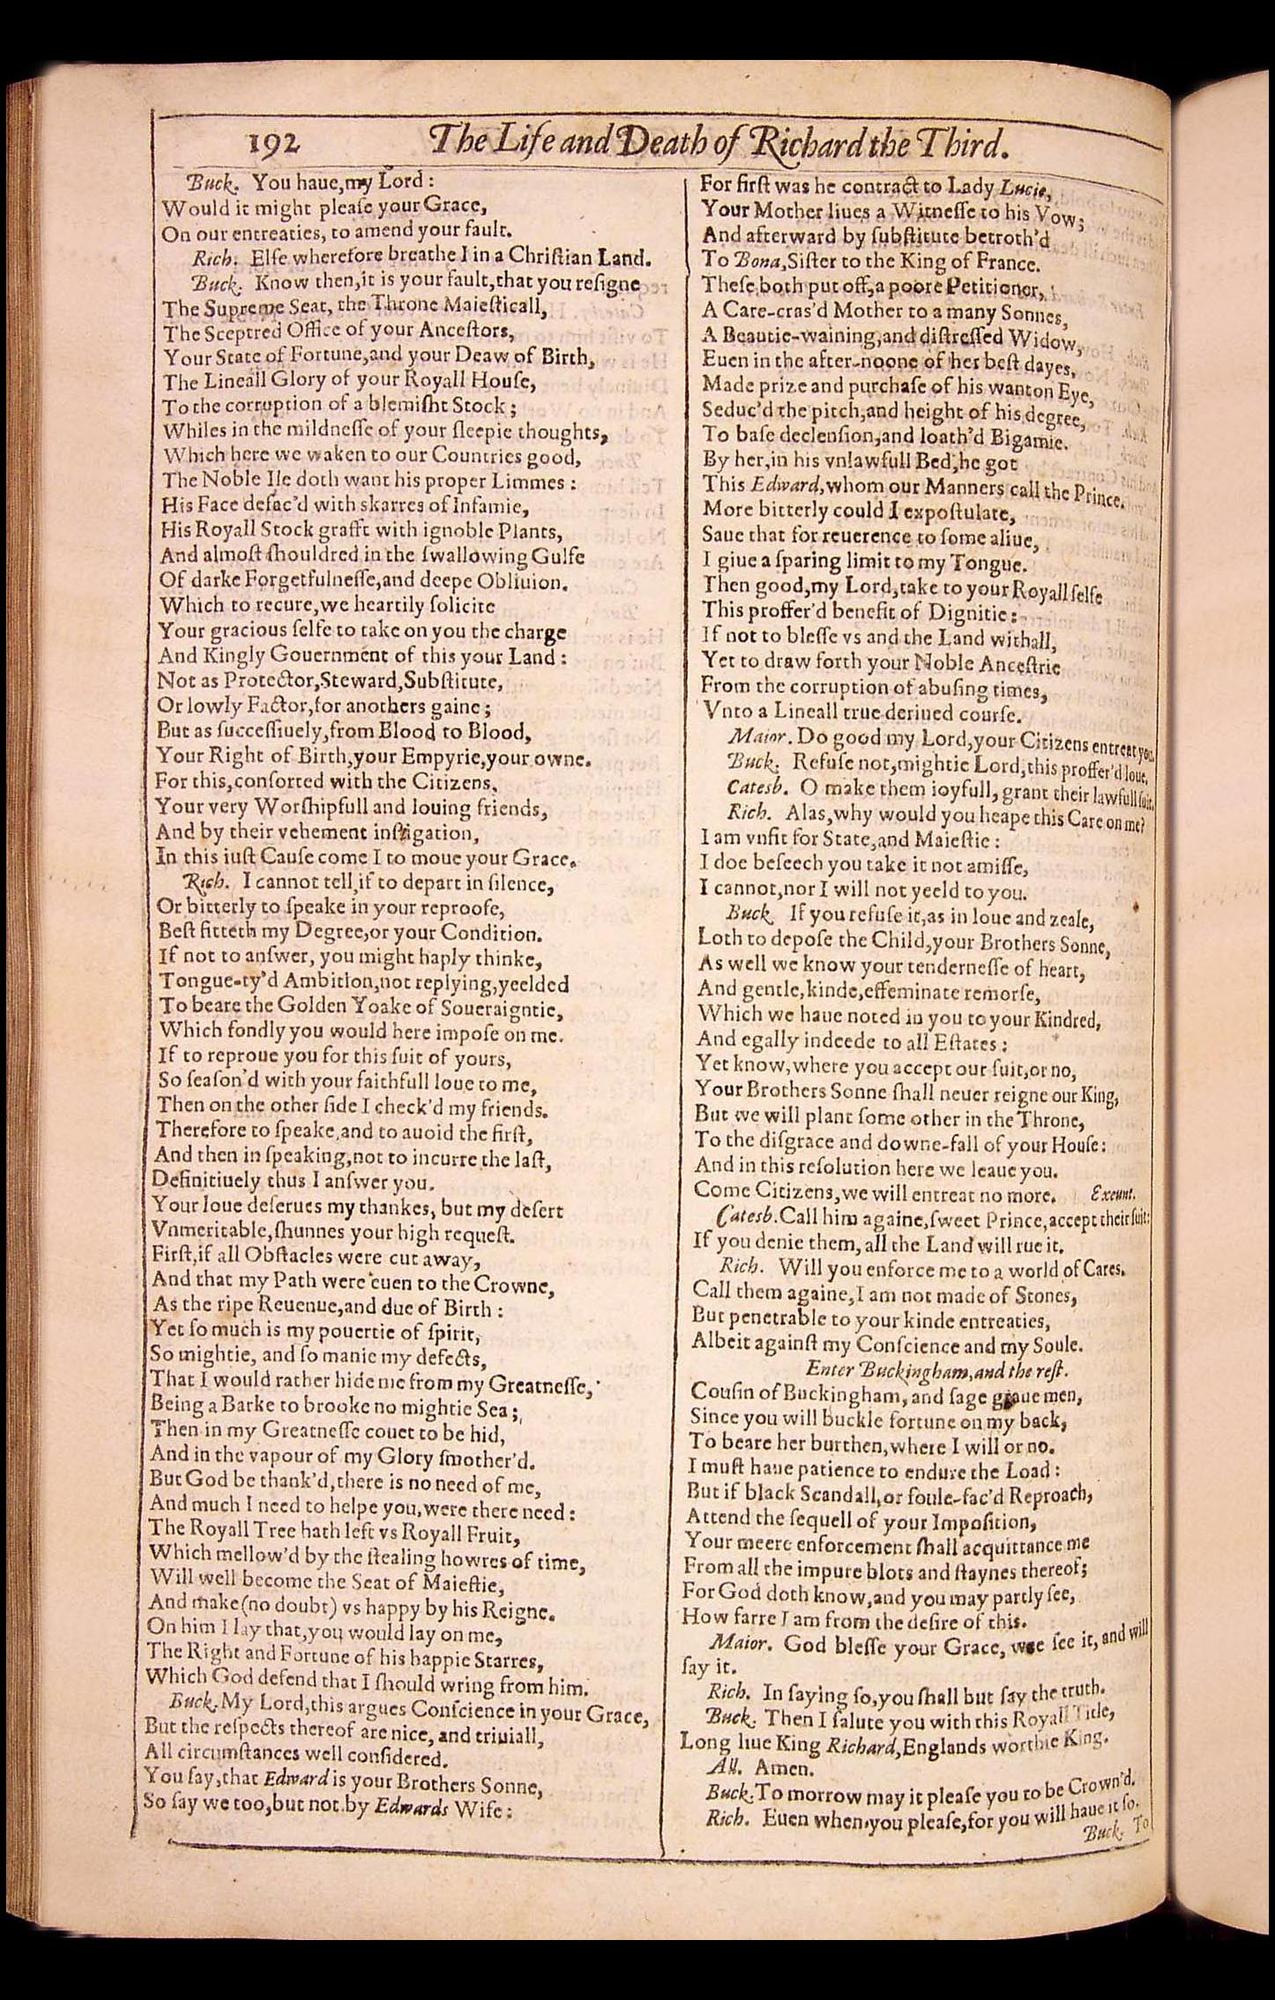 192
The Life and Death of Richard the Third.
Buck. You haue,my Lord :
Would it might pleaſe your Grace,
On our entreaties, to amend your fault.
Rich. Elſe wherefore breathe I in a Chriſtian Land.
Buck. Know then,it is your fault,that you reſigne
The Supreme Seat, the Throne Maieſticall,
The Sceptred Office of your Anceſtors,
Your State of Fortune,and your Deaw of Birth,
The Lineall Glory of your Royall Houſe,
To the corruption of a blemiſht Stock ;
Whiles in the mildneſſe of your ſleepie thoughts,
Which here we waken to our Countries good,
The Noble Ile doth want his proper Limmes :
His Face defac'd with skarres of Infamie,
His Royall Stock grafft with ignoble Plants,
And almoſt ſhouldred in the ſwallowing Gulfe
Of darke Forgetfulneſſe,and deepe Obliuion.
Which to recure,we heartily ſolicite
Your gracious ſelfe to take on you the charge
And Kingly Gouernment of this your Land :
Not as Protector,Steward,Subſtitute,
Or lowly Factor,for anothers gaine ;
But as ſucceſſiuely,from Blood to Blood,
Your Right of Birth,your Empyrie,your owne.
For this,conſorted with the Citizens,
Your very Worſhipfull and louing friends,
And by their vehement inſtigation,
In this iuſt Cauſe come I to moue your Grace.
Rich. I cannot tell,if to depart in ſilence,
Or bitterly to ſpeake in your reproofe,
Beſt fitteth my Degree,or your Condition.
If not to anſwer, you might haply thinke,
Tongue-ty'd Ambition,not replying,yeelded
To beare the Golden Yoake of Soueraigntie,
Which fondly you would here impoſe on me.
If to reproue you for this ſuit of yours,
So ſeaſon'd with your faithfull loue to me,
Then on the other ſide I check'd my friends.
Therefore to ſpeake,and to auoid the firſt,
And then in ſpeaking,not to incurre the laſt,
Definitiuely thus I anſwer you.
Your loue deſerues my thankes, but my deſert
Vnmeritable,ſhunnes your high requeſt.
Firſt,if all Obſtacles were cut away,
And that my Path were euen to the Crowne,
As the ripe Reuenue,and due of Birth :
Yet ſo much is my pouertie of ſpirit,
So mightie, and ſo manie my defects,
That I would rather hide me from my Greatneſſe,
Being a Barke to brooke no mightie Sea ;
Then in my Greatneſſe couet to be hid,
And in the vapour of my Glory ſmother'd.
But God be thank'd,there is no need of me,
And much I need to helpe you,were there need :
The Royall Tree hath left vs Royall Fruit,
Which mellow'd by the ſtealing howres of time,
Will well become the Seat of Maieſtie,
And make(no doubt) vs happy by his Reigne.
On him I lay that,you would lay on me,
The Right and Fortune of his happie Starres,
Which God defend that I ſhould wring from him.
Buck.My Lord,this argues Conſcience in your Grace,
But the reſpects thereof are nice, and triuiall,
All circumſtances well conſidered.
You ſay,that Edward is your Brothers Sonne,
So ſay we too,but not by Edwards Wife :
For firſt was he contract to Lady Lucie,
Your Mother liues a Witneſſe to his Vow;
And afterward by ſubſtitute betroth'd
To Bona,Siſter to the King of France.
Theſe both put off,a poore Petitioner,
A Care-cras'd Mother to a many Sonnes,
A Beautie-waining,and diſtreſſed Widow,
Euen in the after-noone of her beſt dayes,
Made prize and purchaſe of his wanton Eye,
Seduc'd the pitch,and height of his degree,
To baſe declenſion,and loath'd Bigamie.
By her,in his vnlawfull Bed,he got
This Edward,whom our Manners call the Prince.
More bitterly could I expoſtulate,
Saue that for reuerence to ſome aliue,
I giue a ſparing limit to my Tongue.
Then good,my Lord,take to your Royall ſelfe
This proffer'd benefit of Dignitie :
If not to bleſſe vs and the Land withall,
Yet to draw forth your Noble Anceſtrie
From the corruption of abuſing times,
Vnto a Lineall true deriued courſe.
Maior. Do good my Lord,your Citizens entreat you.
Buck. Refuſe not,mightie Lord,this proffer'd loue.
Catesb. O make them ioyfull, grant their lawfull ſuit.
Rich. Alas,why would you heape this Care on me?
I am vnfit for State,and Maieſtie :
I doe beſeech you take it not amiſſe,
I cannot,nor I will not yeeld to you.
Buck. If you refuſe it,as in loue and zeale,
Loth to depoſe the Child,your Brothers Sonne,
As well we know your tenderneſſe of heart,
And gentle,kinde,effeminate remorſe,
Which we haue noted in you to your Kindred,
And egally indeede to all Eſtates :
Yet know,where you accept our ſuit,or no,
Your Brothers Sonne ſhall neuer reigne our King,
But we will plant ſome other in the Throne,
To the diſgrace and downe-fall of your Houſe :
And in this reſolution here we leaue you.
Come Citizens,we will entreat no more. Exeunt.
Catesb.Call him againe,ſweet Prince,accept their ſuit:
If you denie them, all the Land will rue it.
Rich. Will you enforce me to a world of Cares.
Call them againe,I am not made of Stones,
But penetrable to your kinde entreaties,
Albeit againſt my Conſcience and my Soule.
Enter Buckingham,and the reſt.
Couſin of Buckingham, and ſage graue men,
Since you will buckle fortune on my back,
To beare her burthen,where I will or no.
I muſt haue patience to endure the Load :
But if black Scandall,or foule-fac'd Reproach,
Attend the ſequell of your Impoſition,
Your meere enforcement ſhall acquittance me
From all the impure blots and ſtaynes thereof;
For God doth know,and you may partly ſee,
How farre I am from the deſire of this.
Maior. God bleſſe your Grace, wee ſee it, and will
ſay it.
Rich. In ſaying ſo,you ſhall but ſay the truth.
Buck. Then I ſalute you with this Royall Title,
Long liue King Richard,Englands worthie King.
All. Amen.
Buck.To morrow may it pleaſe you to be Crown'd.
Rich. Euen when you pleaſe,for you will haue it ſo.
Buck. To